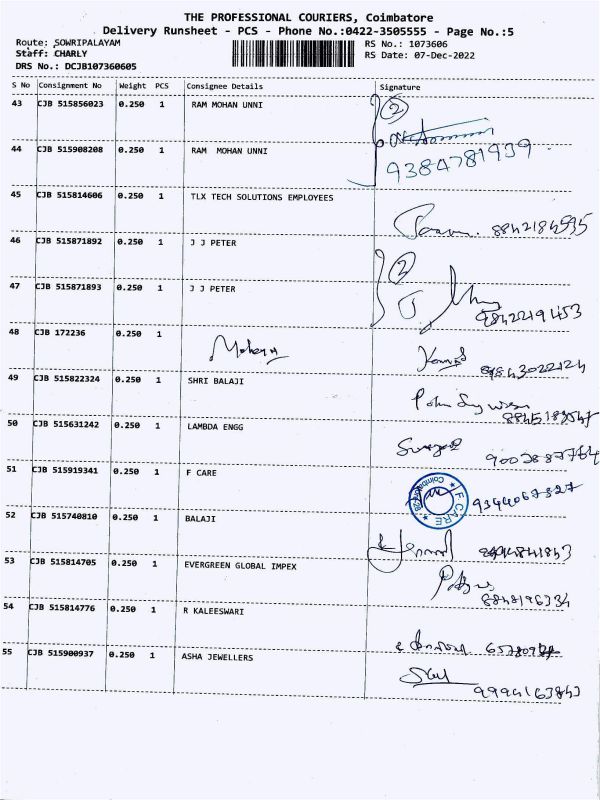 THE PROFESSIONAL COURIERS, Coimbatore
Delivery Runsheet - PCS - Phone No.:0422-3505555 - Page No.:5
Route: SOWRIPALAYAM RS No.: 1073606
Staff: CHARLY RS Date: 07-Dec-2022
DRS No.: DCJB107360605
S No Consignment No Weight PCS Consignee Details Signature
43 CJB 515856023 0.250 1 RAM MOHAN UNNI 2
44 CJB 515908208 0.250 1 RAM MOHAN UNNI 9384781939
45 CJB 515814606 0.250 1 TLX TECH SOLUTIONS EMPLOYEES
8842184535
46 CJB 515871892 0.250 1 J J PETER 2
47 CJB 515871893 0.250 1 J J PETER
9842219453
48 CJB 172236 0.250 1
49 CJB 515822324 0.250 1 SHRI BALAJI
50 CJB 515631242 0.250 1 LAMBDA ENGG
9002887764
51 CJB 515919341 0.250 1 F CARE F CARE Coimbatore
9344067327
52 CJB 515740810 0.250 1 BALAJI
53 CJB 515814705 0.250 1 EVERGREEN GLOBAL IMPEX
8848196334
54 CJB 515814776 0.250 1 R KALEESWARI
55 CJB 515900937 0.250 1 ASHA JEWELLERS
9994163843